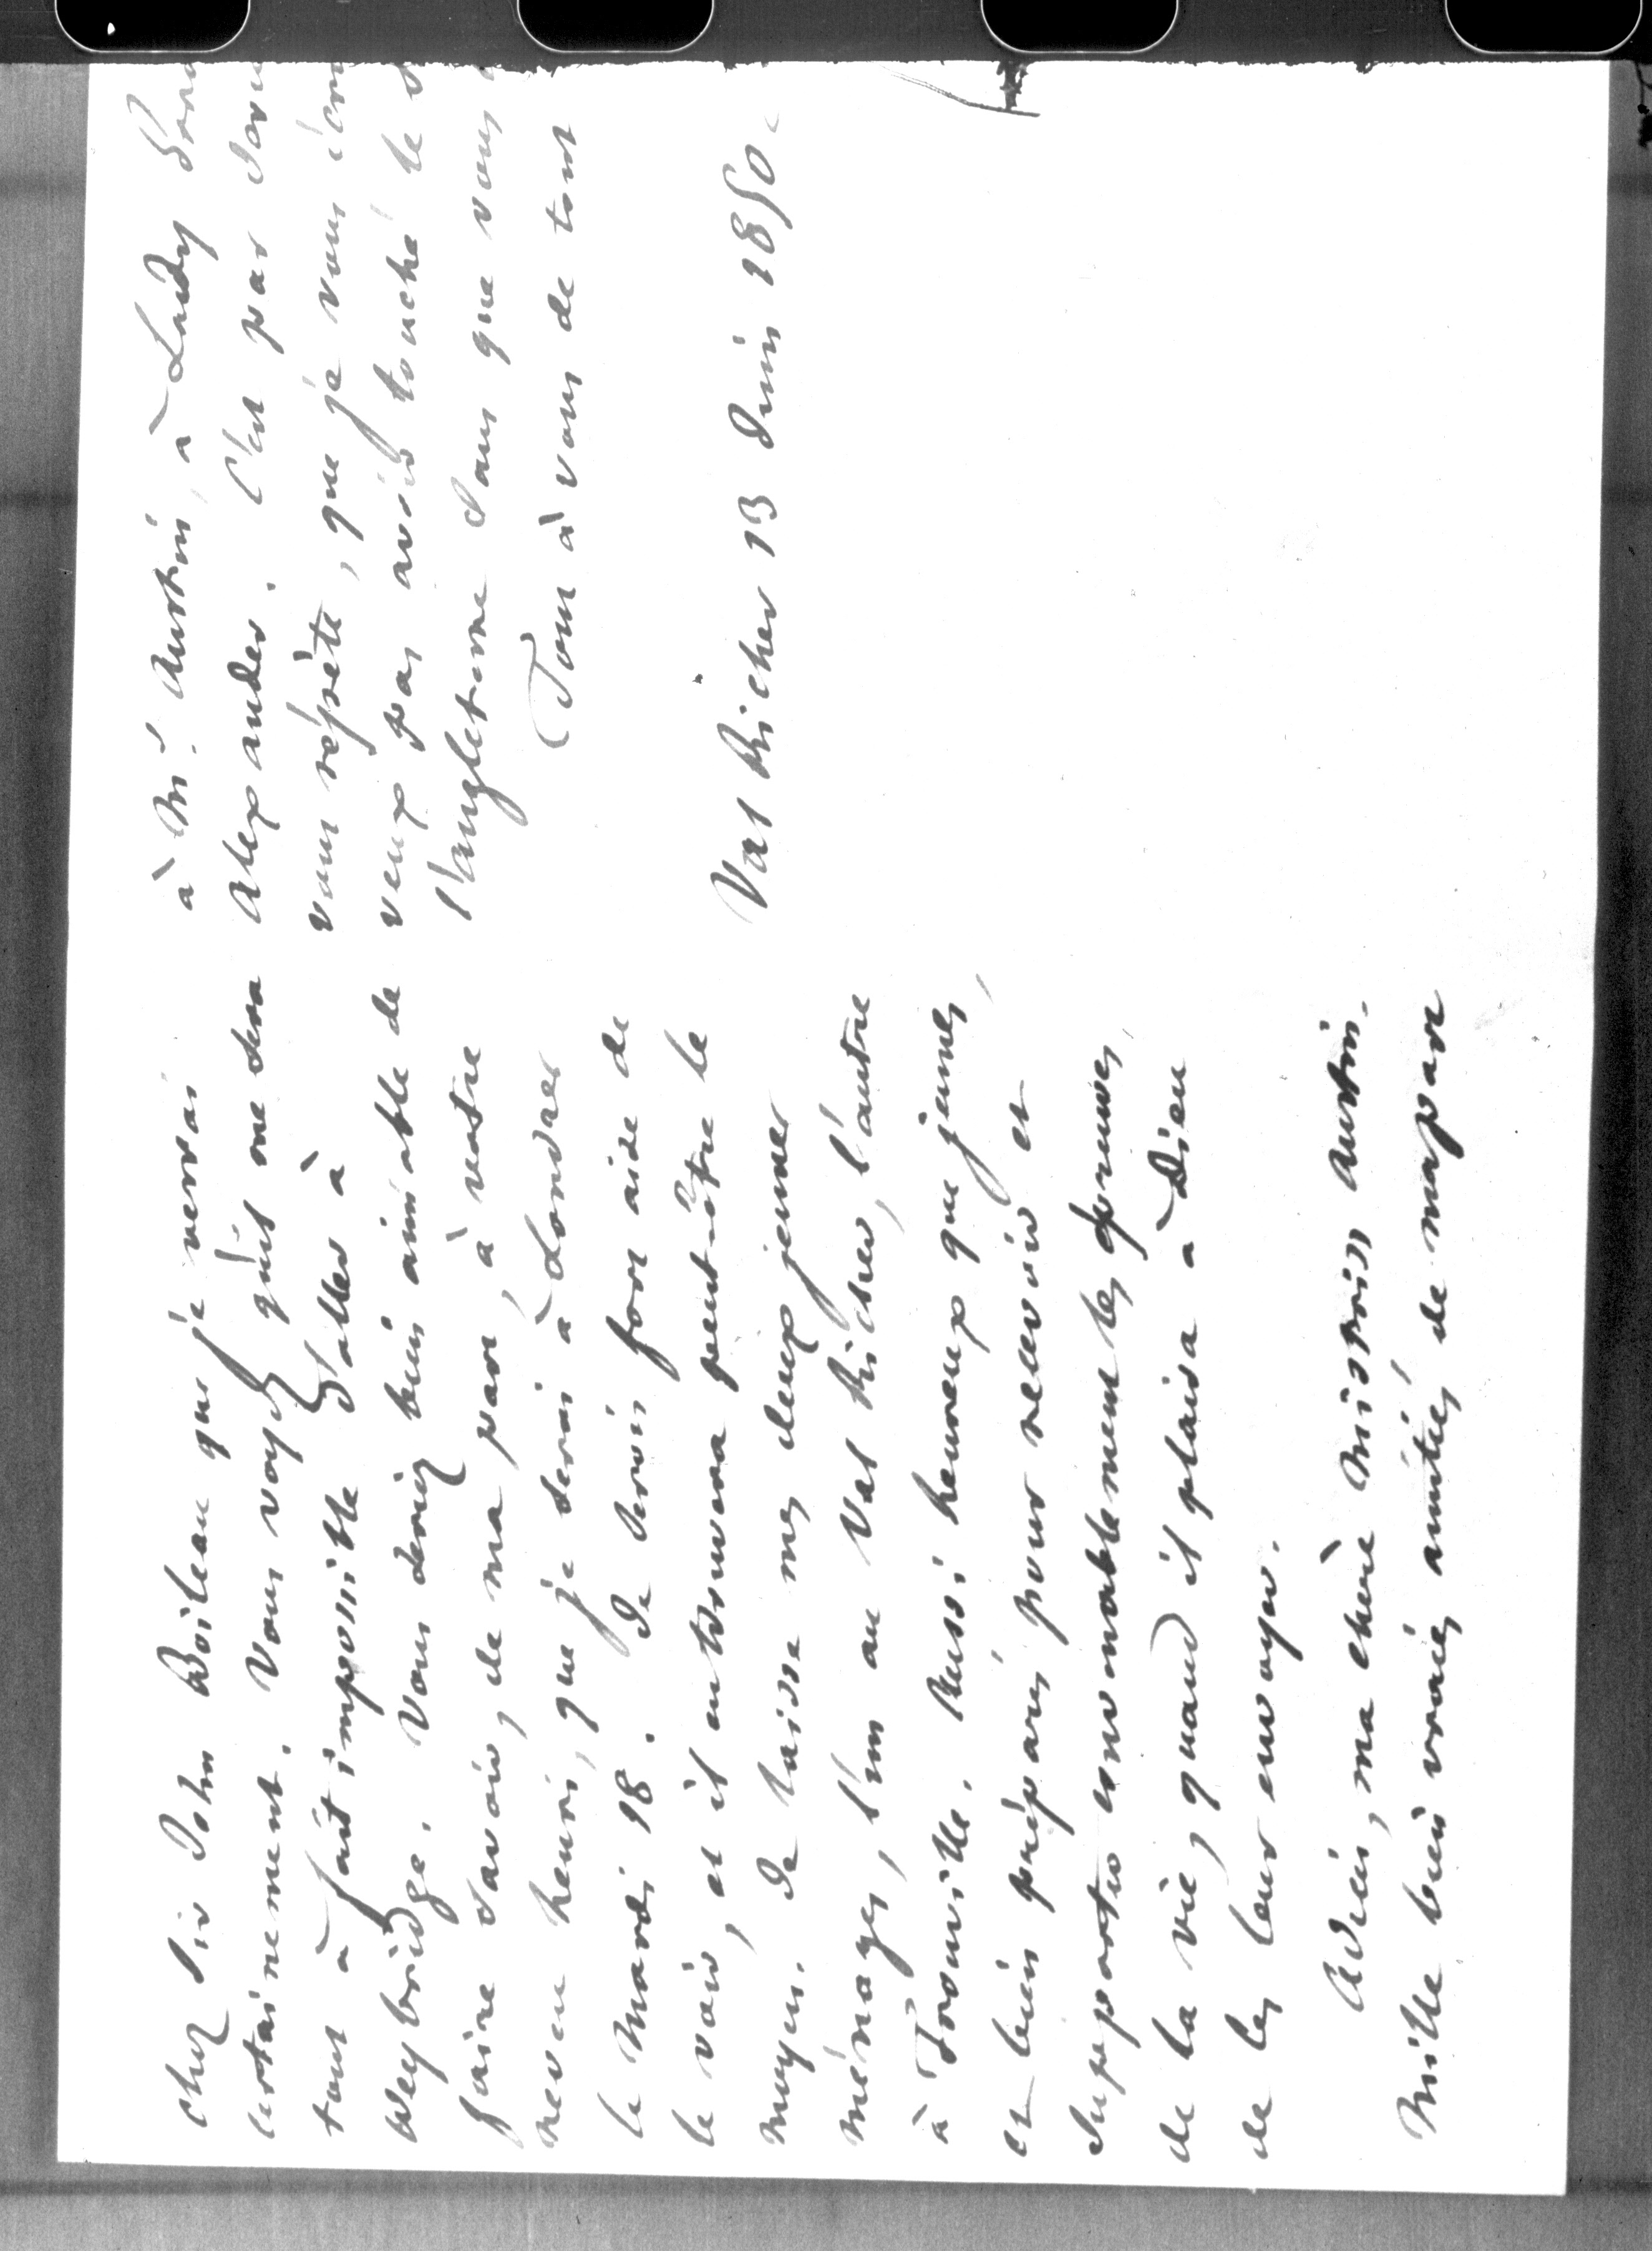 chez Sir John Boileau que je verrai
certainement. Vous voyez qu'il me sera
tout à fait impossible d'aller à
Weybridge. Vous seriez bien aimable de
faire savoir, de ma part, à votre
neveu henri, que je serai à Londres
le mardi 18. Je serais fort aise de
le voir, et il me trouvera peut-être le
moyen. Je laisse mes deux jeunes
ménages, l'un au Val Richer, l'autre
à Trouville. Aussi heureux que jeunes,
et bien préparés pour recevoir et
supporter convenablement les épreuves
de la vie, quand il plaira à Dieu
de les leur envoyer.
Adieu, ma chère Mistriss Austin.
Mille bien vraies amitiés de ma part
à Mr. Austin, à Lady
Alexander. C'est par
vous répète, que je vous
veux pas avoir touché le
l'angleterre sans que vous
Tout à vous de tout
Val Richer 13 Juin 1850.